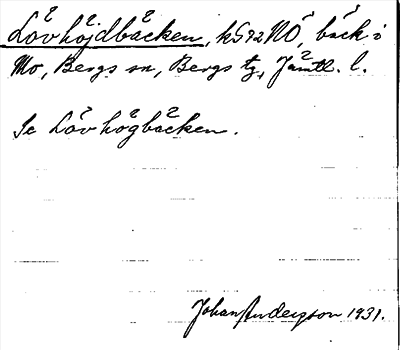 Lövhöjdbäcken, kS72NÖ, bäck i
Mo, Bergs sn, Bergs tg, Jämtl. l.
Se Lövhögbäcken.
Johan Anderzson 1931.